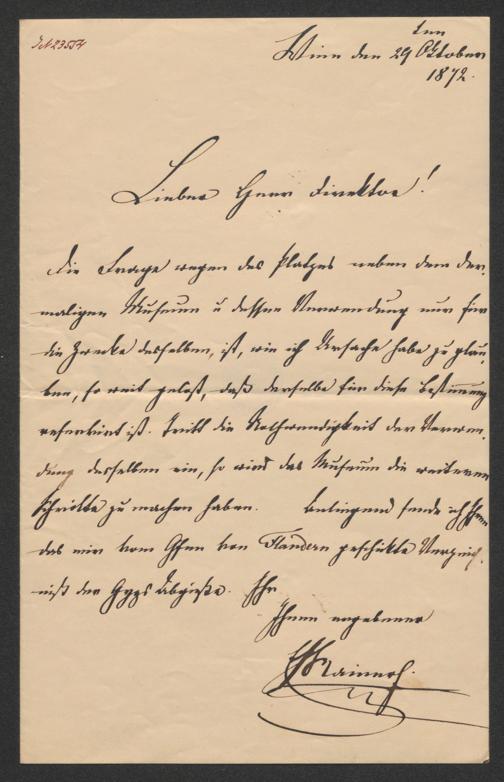 IN 23554
Wien den 29 ten Oktober
1872.
Lieber Herr Direktor!
Die Frage wegen des Platzes neben dem der-
maligen Museum u dessen Verwendung nur für
die Zwecke desselben, ist, wie ich Ursache habe zu glau-
ben, so weit gelöst, daß derselbe für diese Bestimmung
reservirt ist. Tritt die Nothwendigkeit der Verwen-
dung desselben ein, so wird das Museum die weiteren
Schritte zu machen haben. Beliegend sende ich Ihnen
das mir vom Ghen von Flandern geschickte Verzeich-
niß der Gyps Abgüße. Ihr
Ihnen ergebener